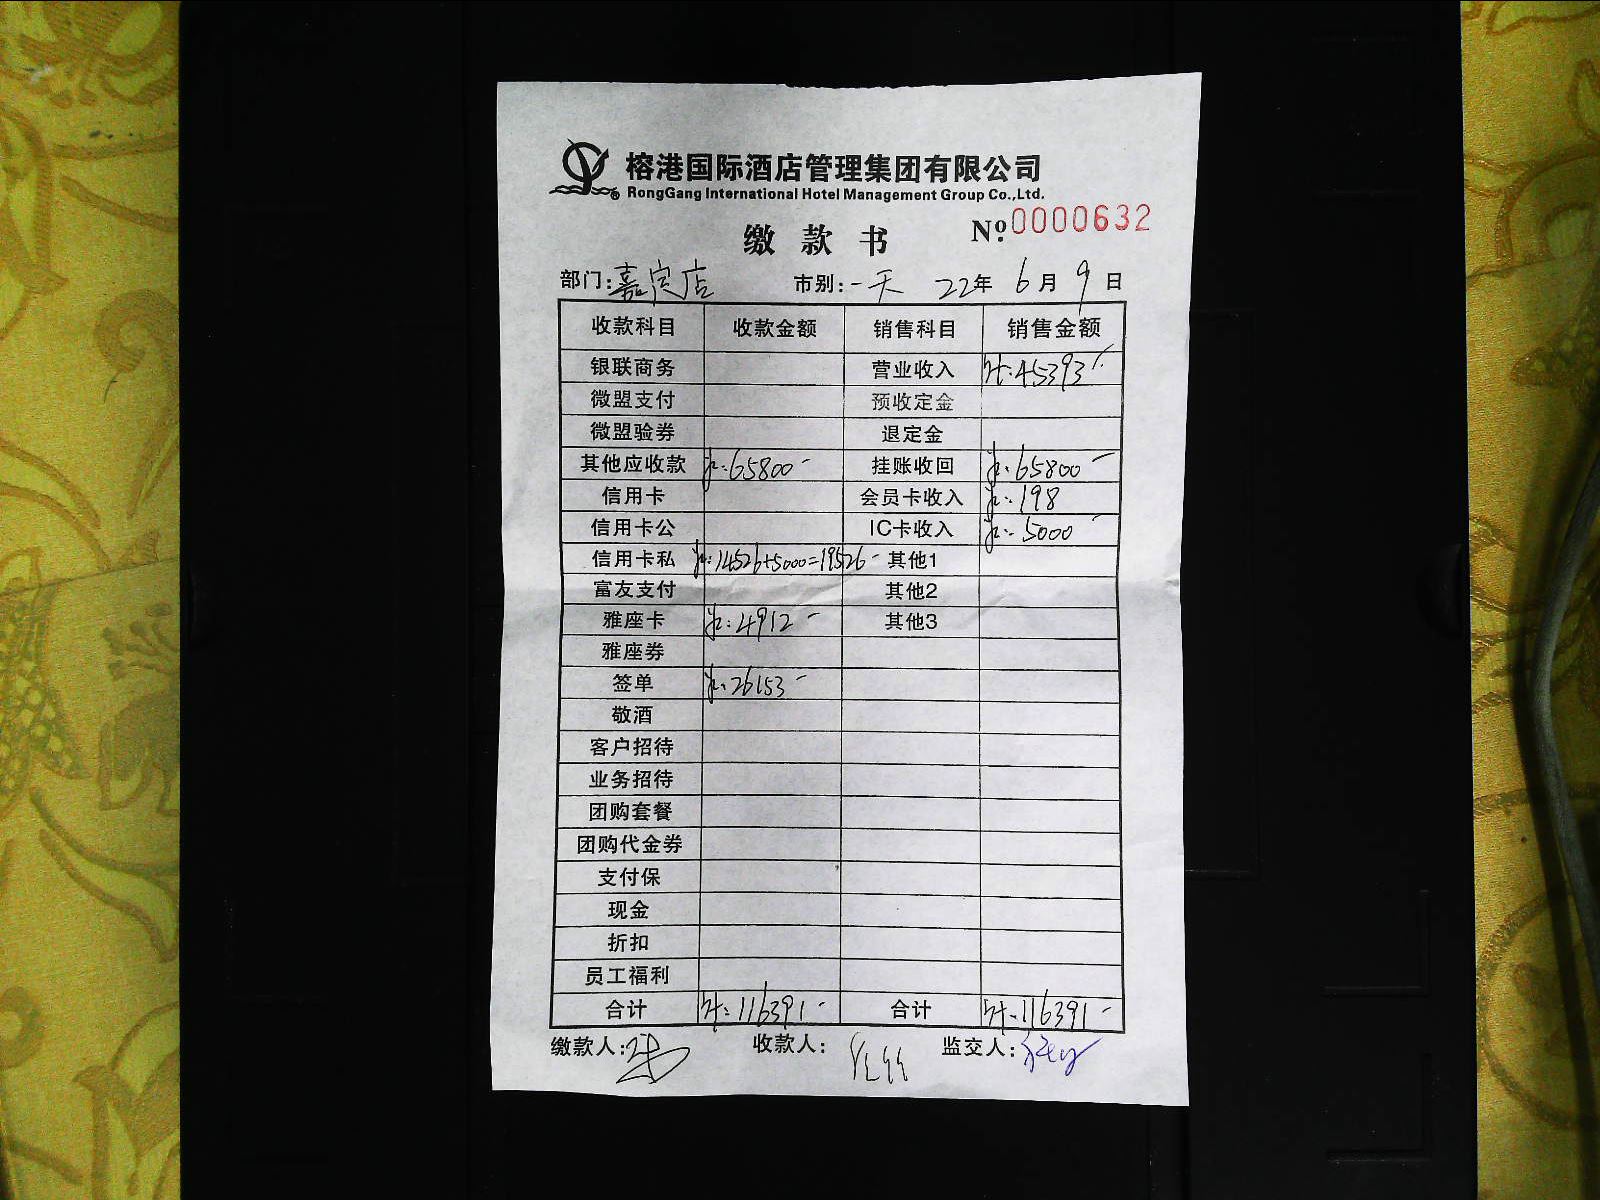 榕港国际酒店管理集团有限公司
RongGang International Hotel Management Group Co.,Ltd.
缴款书 №:0000632
部门:嘉定店 市别:一天 22年6月9日
收款科目 收款金额 销售科目 销售金额
银联商务 营业收入 计:45393
微盟支付 预收定金
微盟验券 退定金
其他应收款 :65800 挂账收回 :65800
信用卡 会员卡收入 :198
信用卡公 IC卡收入 :5000
信用卡私 :14526+5000=19526 其他1
富友支付 其他2
雅座卡 :4912 其他3
雅座券
签单 :26153
敬酒
客户招待
业务招待
团购套餐
团购代金券
支付保
现金
折扣
员工福利
合计 计:116391 合计 计:116391
缴款人: 收款人: 监交人: